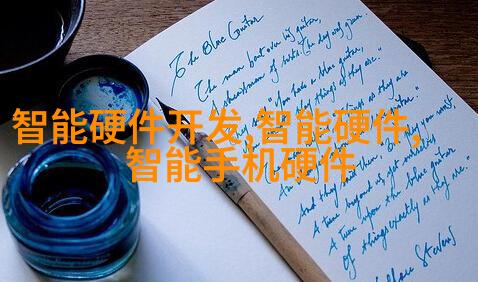 The Blue Guitar
The man bent over his guitar,
A shearsman of sorts. The day was green.
They said, "You have a blue guitar,
You do not play things as they are."
智能硬件开发,智能硬件,
智能手机硬件
And they said then, "But play you must,
A tune beyond us, yet ourselves,
A tune upon the blue guitar
Of things exactly as they are."
Wallace Stevens